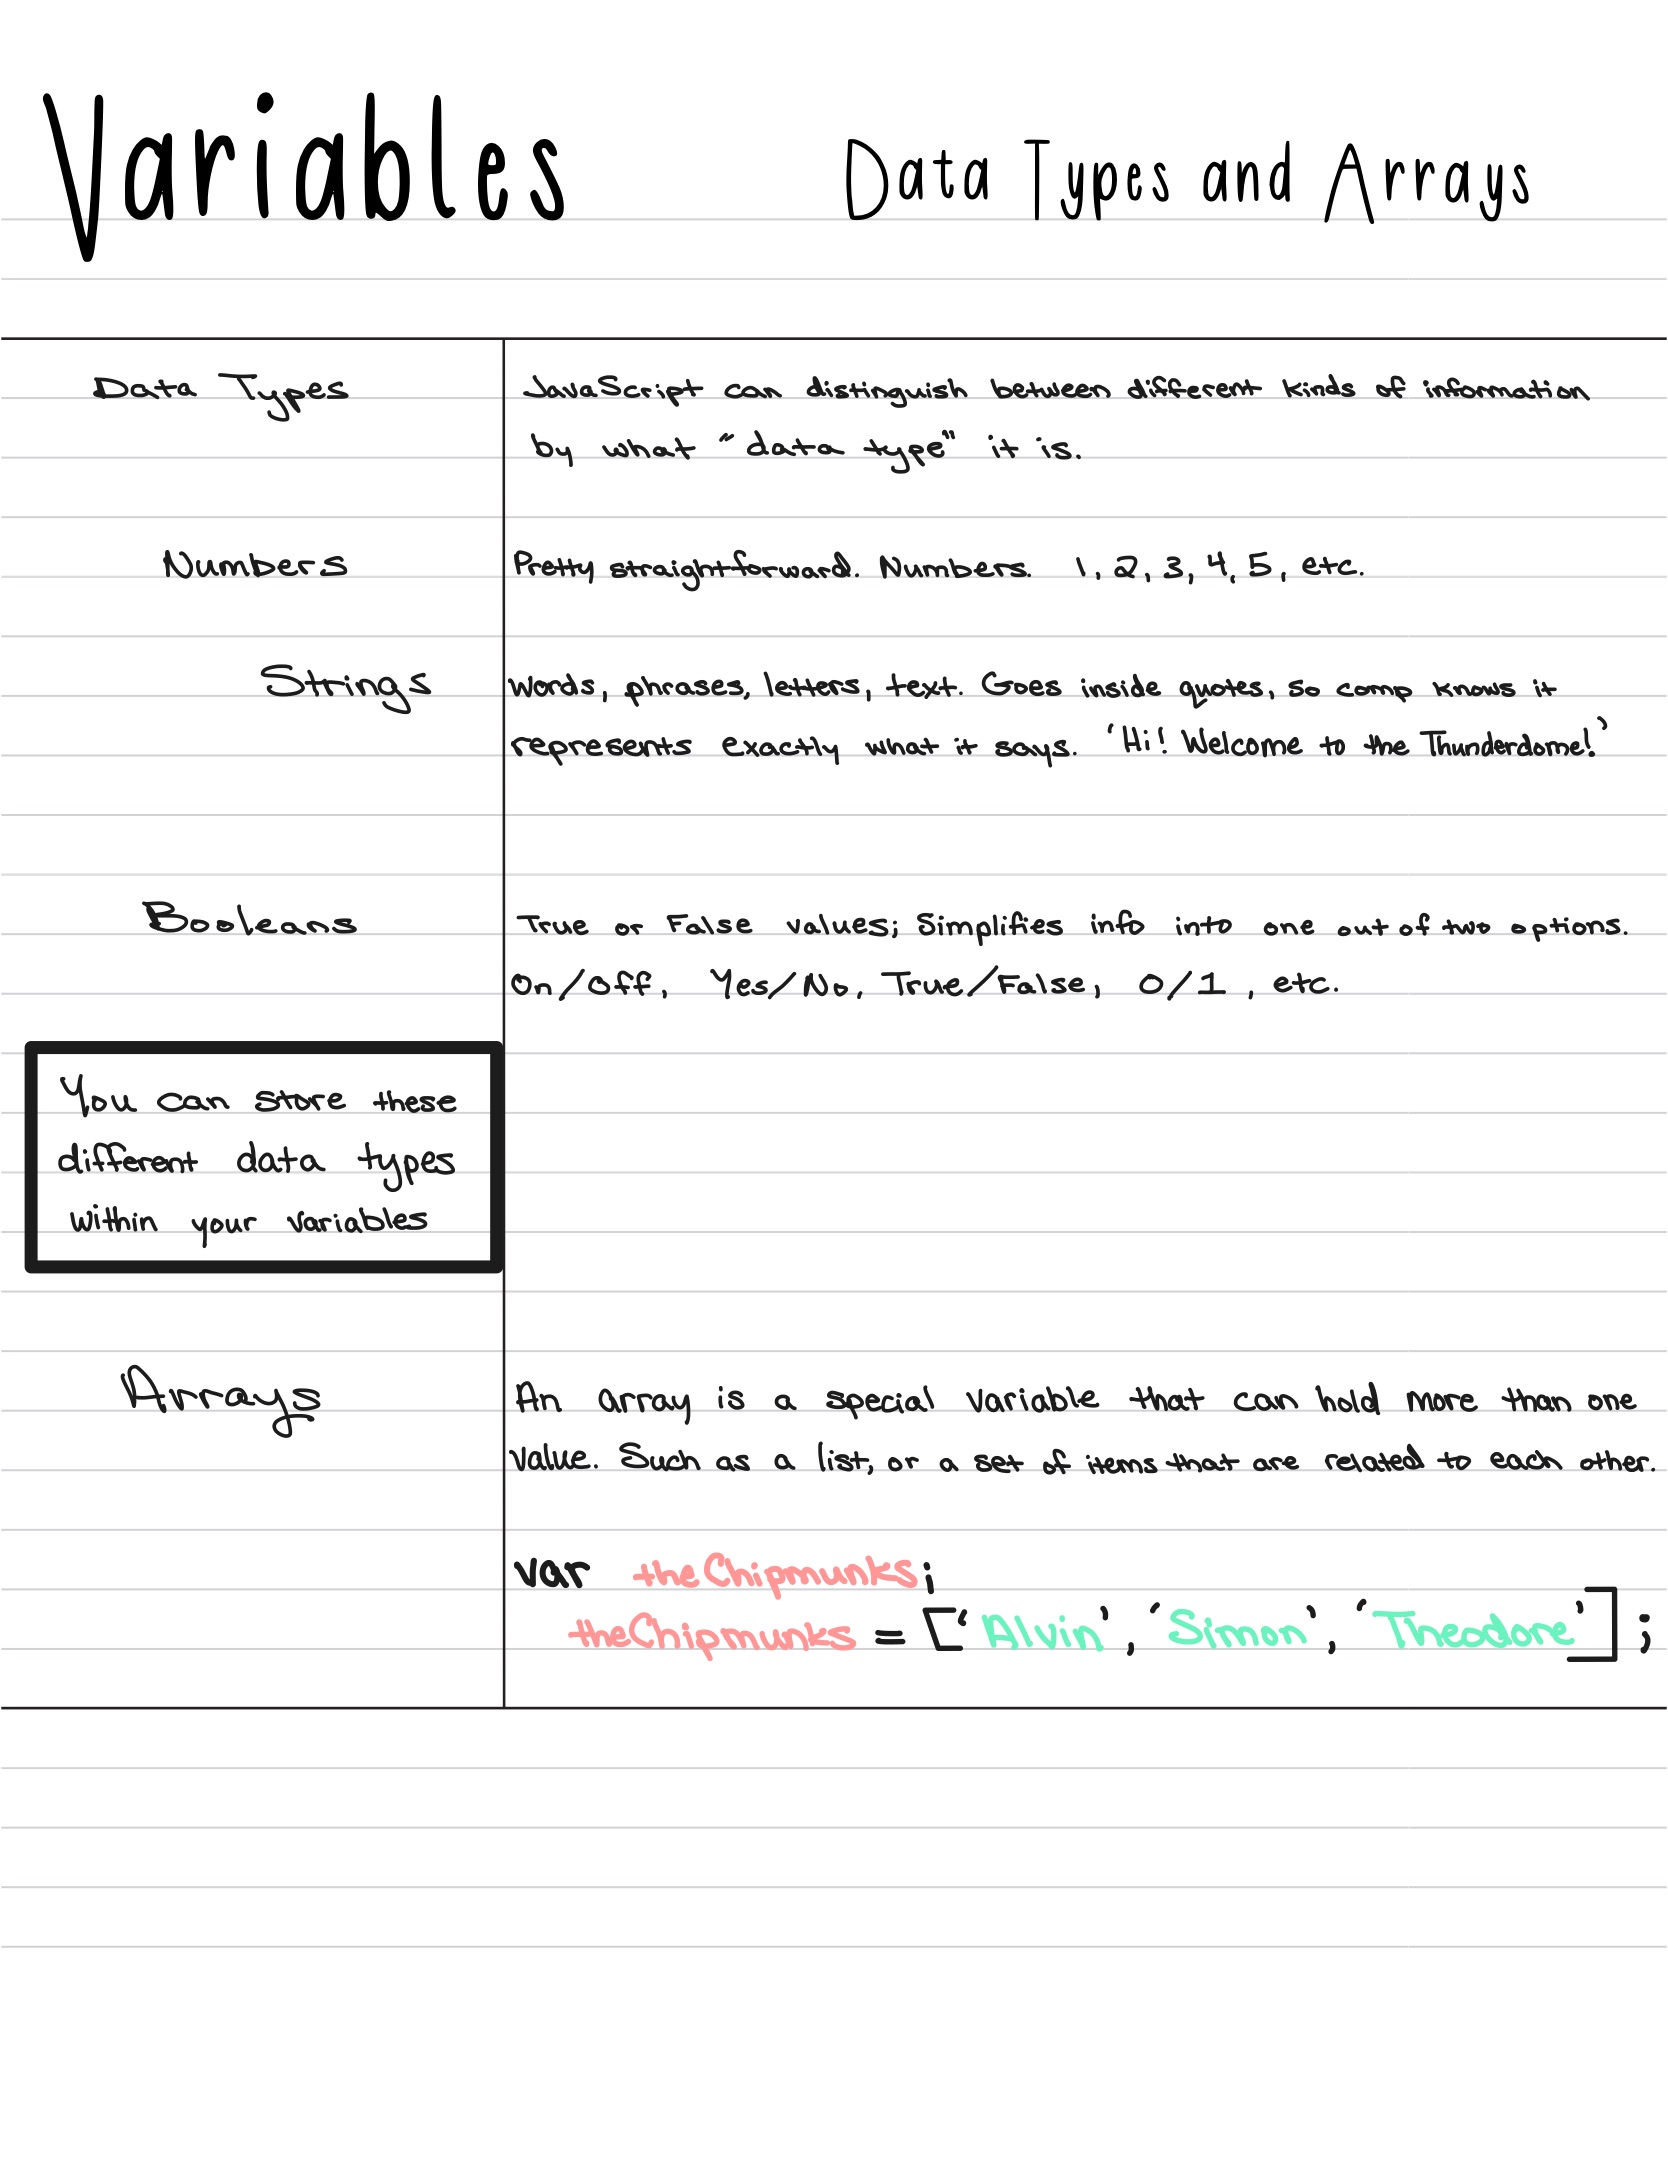 Variables
Data Types and Arrays
Data Types
JavaScript can distinguish between different kinds of information
by what "data type" it is.
Numbers
Pretty straightforward. Numbers. 1, 2, 3, 4, 5, etc.
Strings
Words, phrases, letters, text. Goes inside quotes, so comp knows it
represents exactly what it says. 'Hi! Welcome to the Thunderdome!'
Booleans
True or False values; Simplifies info into one out of two options.
On/Off, Yes/No, True/False, 0/1, etc.
You can store these
different data types
within your variables
Arrays
An array is a special variable that can hold more than one
value. Such as a list, or a set of items that are related to each other.
var theChipmunks;
theChipmunks = ['Alvin', 'Simon', 'Theodore'];